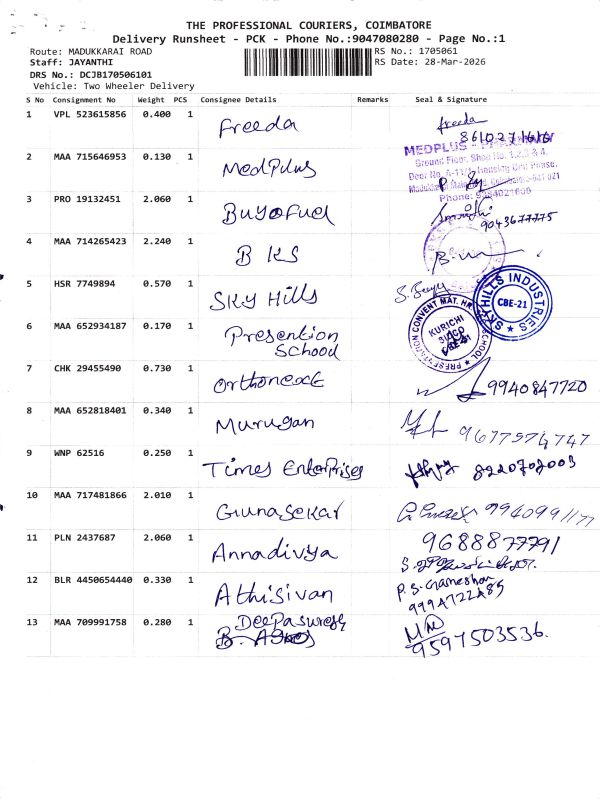 THE PROFESSIONAL COURIERS, COIMBATORE
Delivery Runsheet - PCK - Phone No.:9047080280 - Page No.:1
Route: MADUKKARAI ROAD RS No.: 1705061
Staff: JAYANTHI RS Date: 28-Mar-2026
DRS No.: DCJB170506101
Vehicle: Two Wheeler Delivery
S No Consignment No Weight PCS Consignee Details Remarks Seal & Signature
1 VPL 523615856 0.400 1 Freeda freeda
8610271616
MEDPLUS - PHARMACY
Ground Floor, Shop No. 1,2,3 & 4,
2 MAA 715646953 0.130 1 MedPlus
Phone:
3 PRO 19132451 2.060 1 BuyoFuel
9043677775
4 MAA 714265423 2.240 1 B KS
5 HSR 7749894 0.570 1 SKY Hills
SKY HILLS INDUSTRIES
CBE-21
6 MAA 652934187 0.170 1 Presention
School
PRESENTATION CONVENT MAT. HR SCHOOL
KURICHI
7 CHK 29455490 0.730 1 Orthonext 9940847720
8 MAA 652818401 0.340 1 Murugan 9677574747
9 WNP 62516 0.250 1 Times Enterprises 8220702003
10 MAA 717481866 2.010 1 Gunasekar 9940991177
11 PLN 2437687 2.060 1 Annadivya 9688877791
12 BLR 4450654440 0.330 1 Athisivan P.S. Ganeshan
9994722485
13 MAA 709991758 0.280 1 Deepasuresh
9597503536.